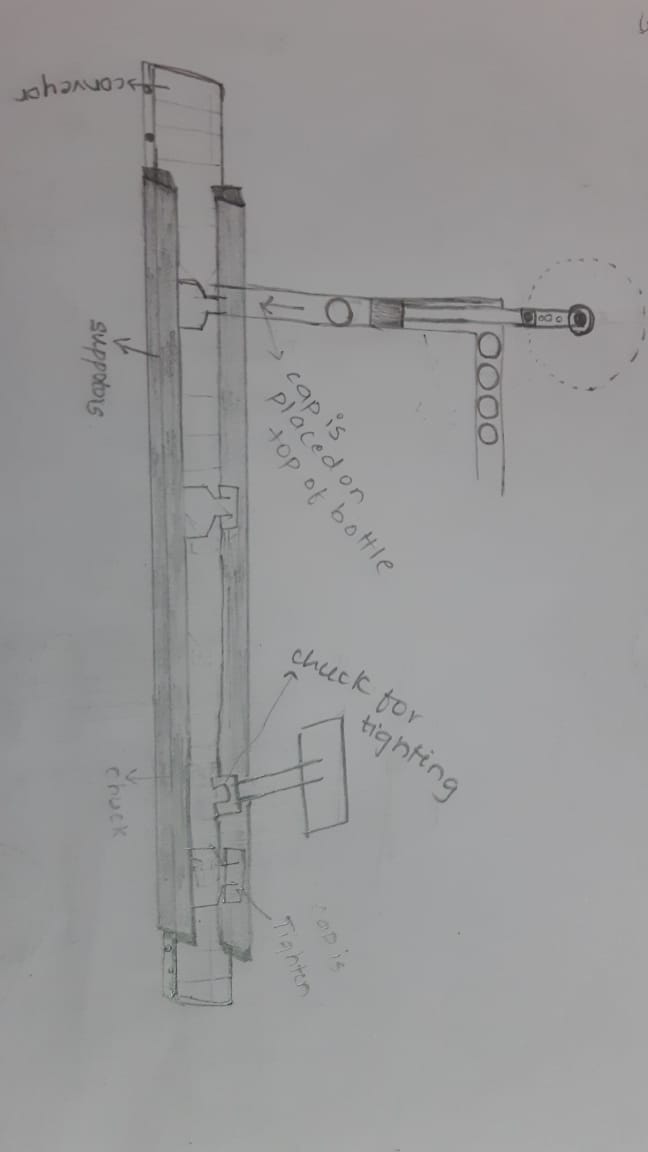 conveyor
supports
cap is
placed on
top of bottle
chuck for
tighting
chuck
cap is
Tighten